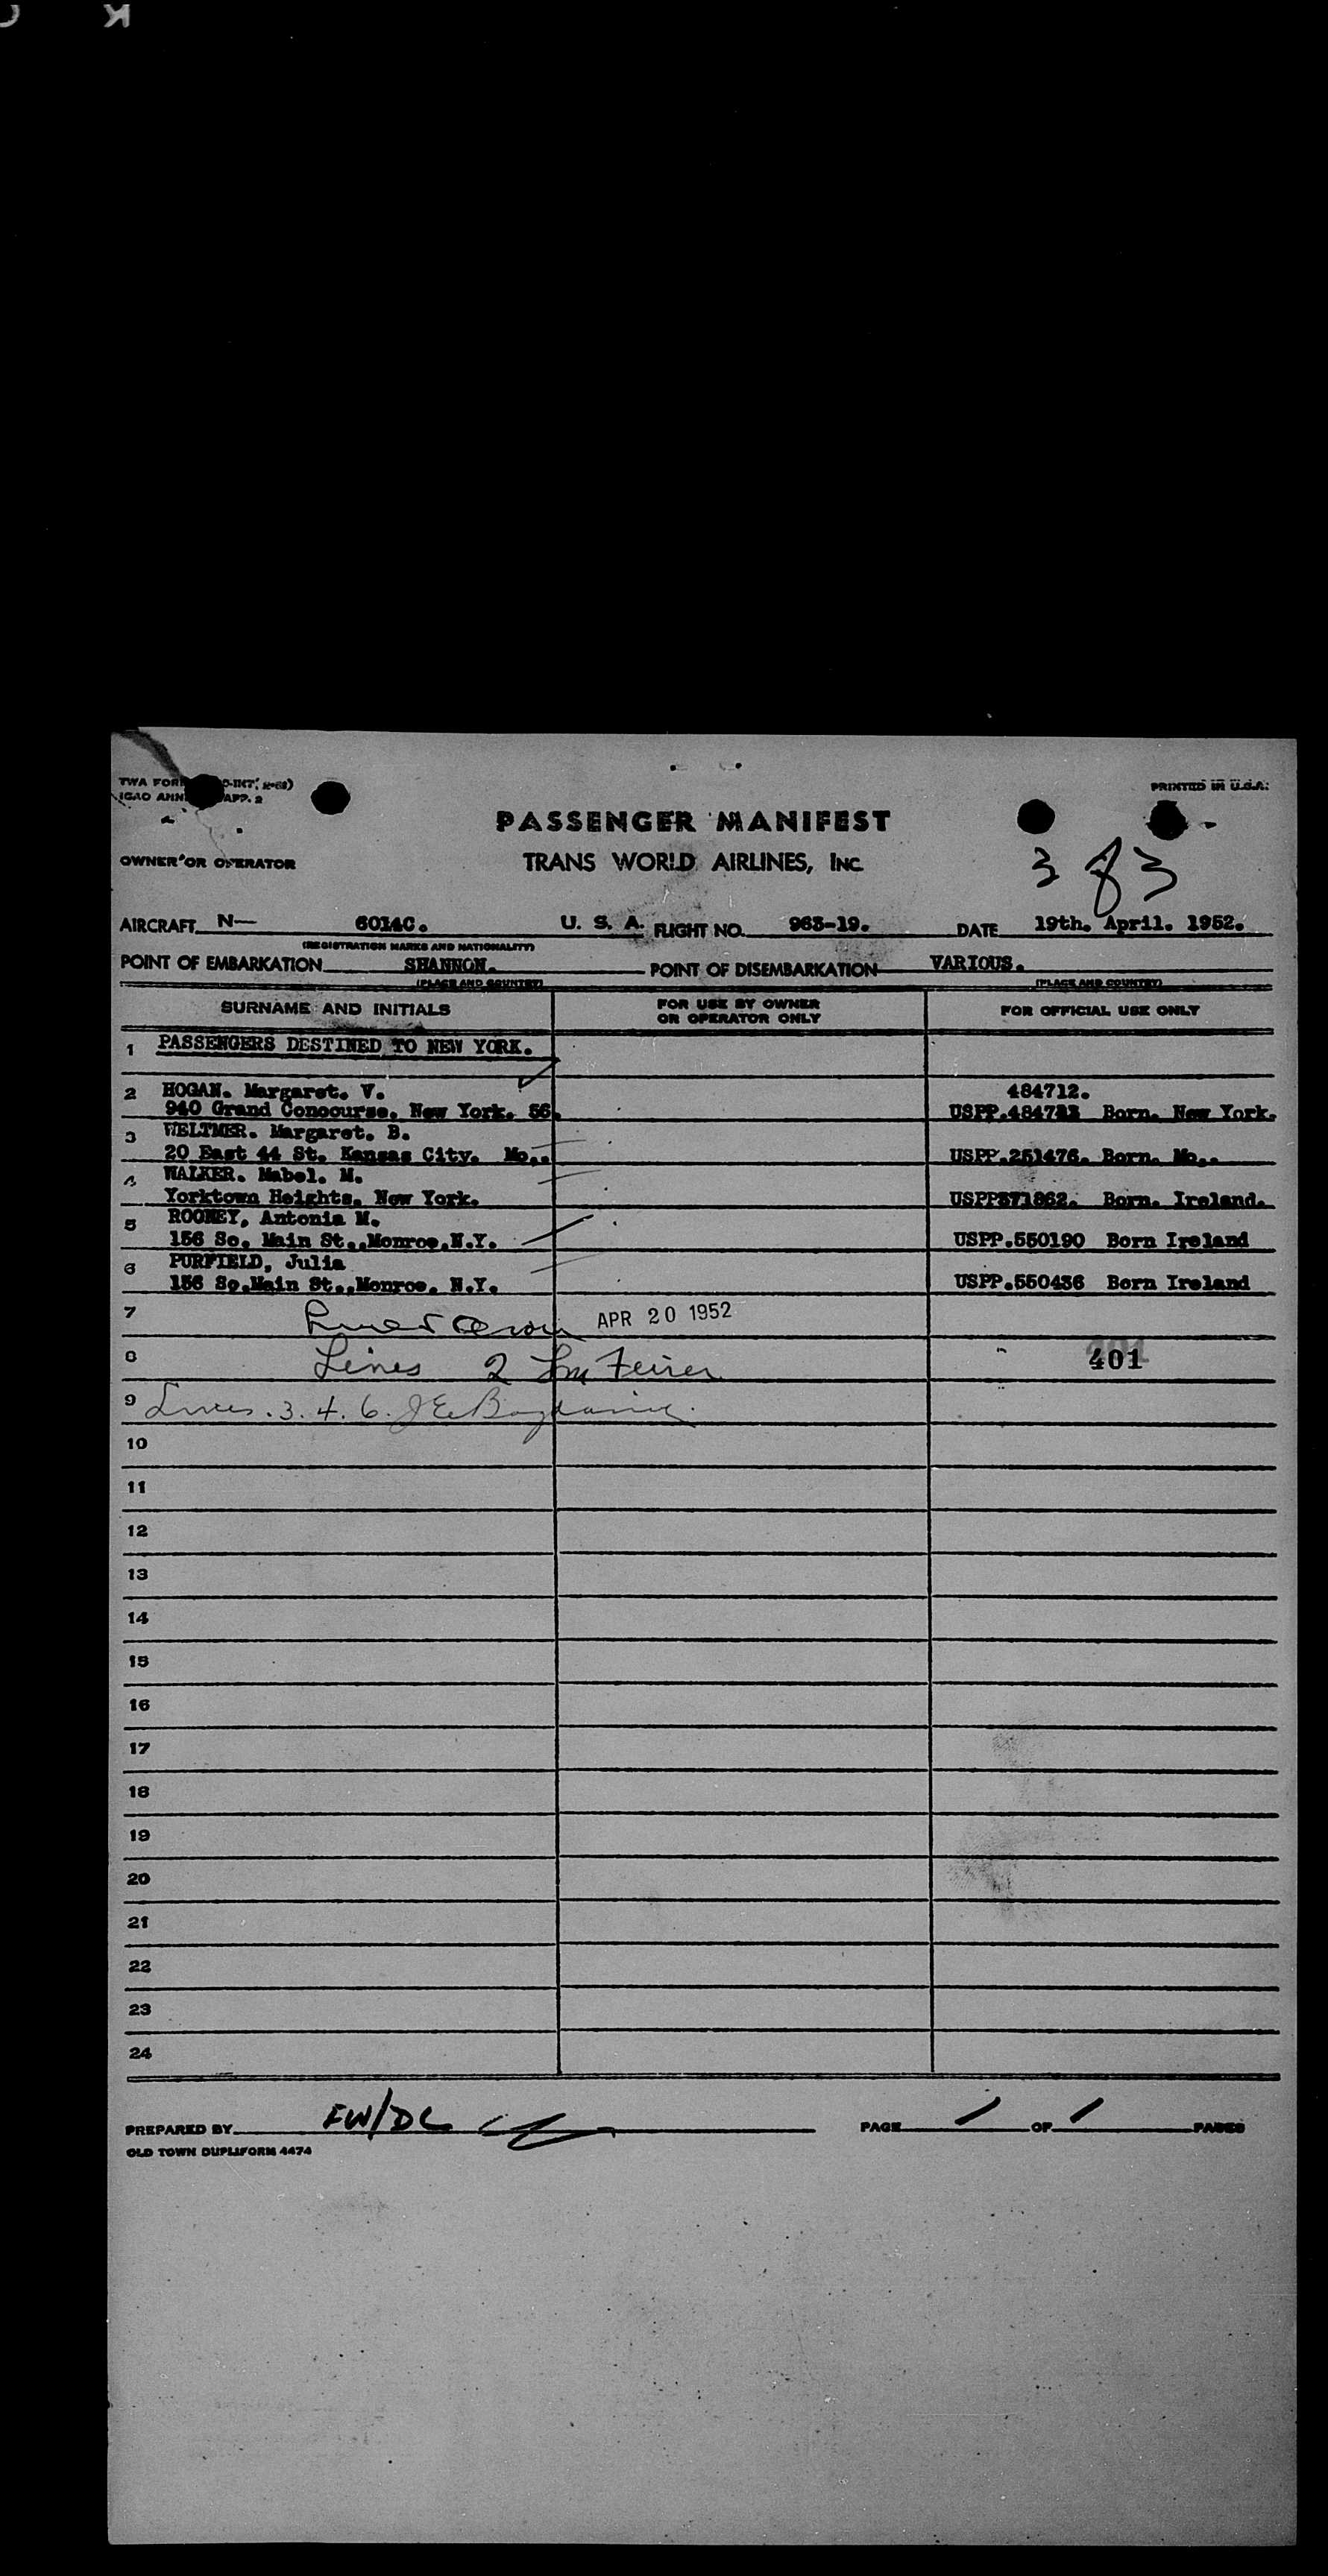 TWA FOR
ICAO ANN APP. 2
PRINTED IN U.S.A.
PASSENGER MANIFEST
OWNER OR OPERATOR
TRANS WORLD AIRLINES, INC.
383
AIRCRAFT N— 6014C. U. S. A. FLIGHT NO. 963-19. DATE 19th. April. 1952.
(REGISTRATION MARKS AND NATIONALITY)
POINT OF EMBARKATION SHANNON. POINT OF DISEMBARKATION VARIOUS.
(PLACE AND COUNTRY) (PLACE AND COUNTRY)
SURNAME AND INITIALS FOR USE BY OWNER OR OPERATOR ONLY FOR OFFICIAL USE ONLY
1 PASSENGERS DESTINED TO NEW YORK.
2 HOGAN. Margaret. V. 484712.
940 Grand Concourse. New York. 56. USPP. Born. New York.
3 WELTMER. Margaret. B.
20 East 44 St. Kansas City. Mo.. USPP.251476. Born. Mo..
4 WALKER. Mabel. M.
Yorktown Heights. New York. USPP371862. Born. Ireland.
5 ROONEY, Antonia M.
156 So. Main St.,Monroe,N.Y. USPP.550190 Born Ireland
6 PURFIELD, Julia
156 So.Main St.,Monroe, N.Y. USPP.550436 Born Ireland
7 APR 20 1952
8 Lines 2 401
9 Lines. 3. 4. 6.
10
11
12
13
14
15
16
17
18
19
20
21
22
23
24
PREPARED BY FW/DC PAGE 1 OF 1 PAGES
OLD TOWN DUPLIFORM 4474